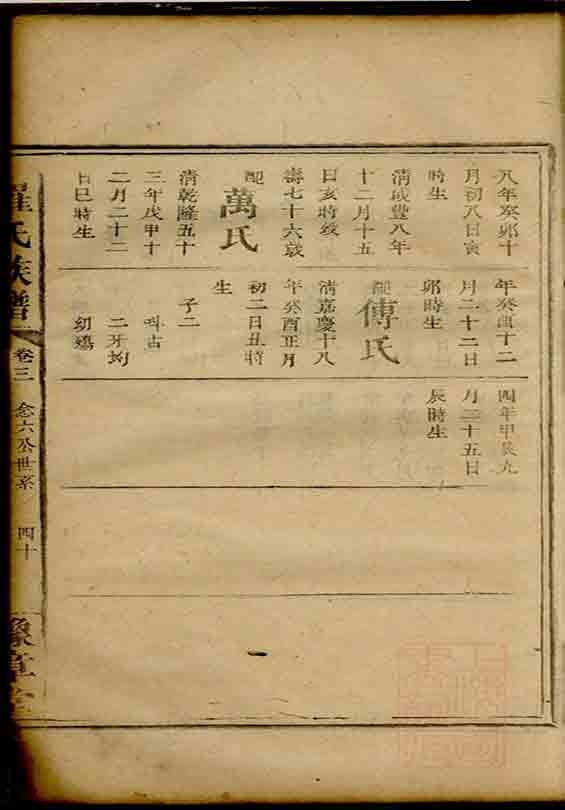 八年癸卯十
月初八日寅
時生
清咸豐八年
十二月十五
日亥時歿
壽七十六歲
配
萬氏
清乾隆五十
三年戊申十
二月二十二
日巳時生
年癸酉十二
月二十二日
卯時生
配
傅氏
清嘉慶十八
年癸酉正月
初二日丑時
生
子二
二牙坳
幼殤
四年甲辰九
月二十五日
辰時生
羅氏族譜
卷三
念六公世系
四十
豫章堂